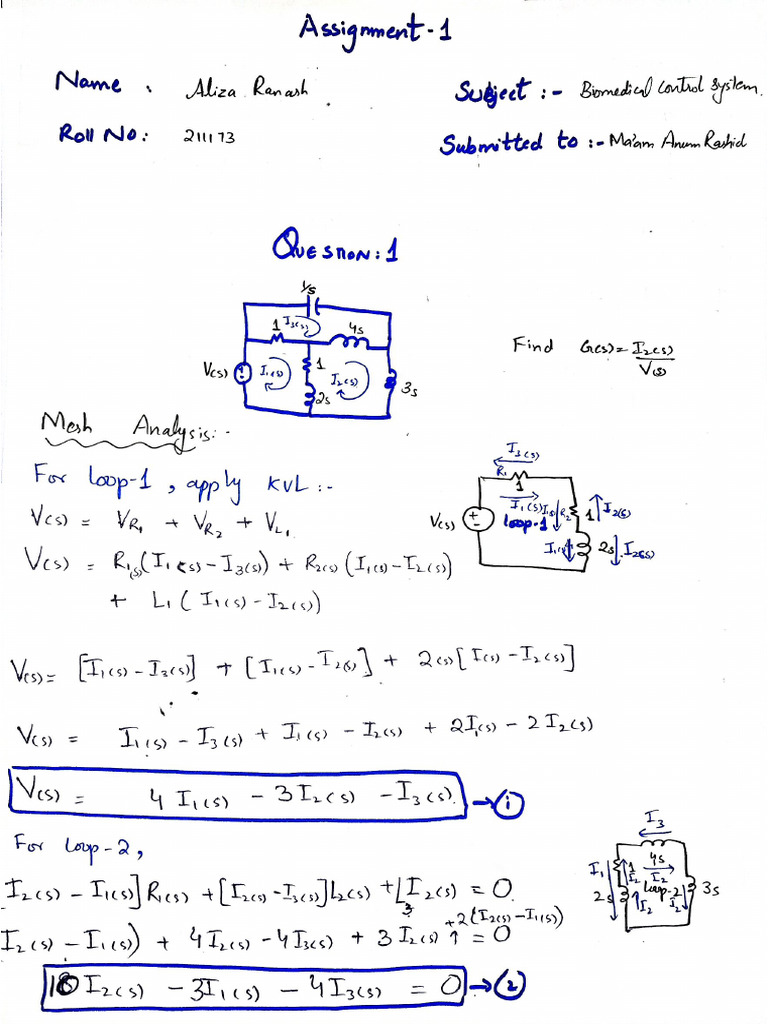 Assignment-1
Name : Aliza Ranash
Subject :- Biomedical Control System.
Roll No: 211173
Submitted to :- Ma'am Anum Rashid
QUESTION: 1
1/s
1 I3(s) 4s
V(s) I1(s) 1 I2(s) 3s
2s
Find G(s) = I2(s)/V(s)
Mesh Analysis:-
For loop-1, apply KVL :-
V(s) = VR1 + VR2 + VL1
V(s) = R1(s)(I1(s) - I3(s)) + R2(s) (I1(s) - I2(s))
+ L1 ( I1(s) - I2(s))
I3(s)
R1
1
I1(s) I1(s) R2 1 I2(s)
V(s) loop-1
I1(s) 2s I2(s)
V(s) = [I1(s) - I3(s)] + [I1(s) - I2(s)] + 2(s) [I(s) - I2(s)]
V(s) = I1(s) - I3(s) + I1(s) - I2(s) + 2I1(s) - 2I2(s)
V(s) = 4 I1(s) - 3I2(s) - I3(s). → 1
For loop-2,
I3
4s
I1 1 I2 I2
2s loop-2 3s
I2 I2
I2(s) - I1(s)] R1(s) + [I2(s) - I3(s)] L2(s) + L3 I2(s) = 0
I2(s) - I1(s)) + 4I2(s) - 4I3(s) + 3I2(s) + 2(I2(s) - I1(s)) = 0
10 I2(s) - 3I1(s) - 4I3(s) = 0 → 2